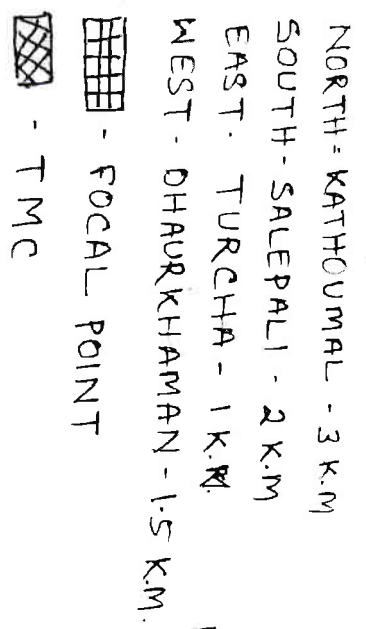 NORTH = KATHOUMAL - 3 K.M
SOUTH - SALEPALI - 2 K.M
EAST - TURCHA - 1 K.M.
WEST - DHAURKHAMAN - 1.5 K.M.
- FOCAL POINT
- TMC